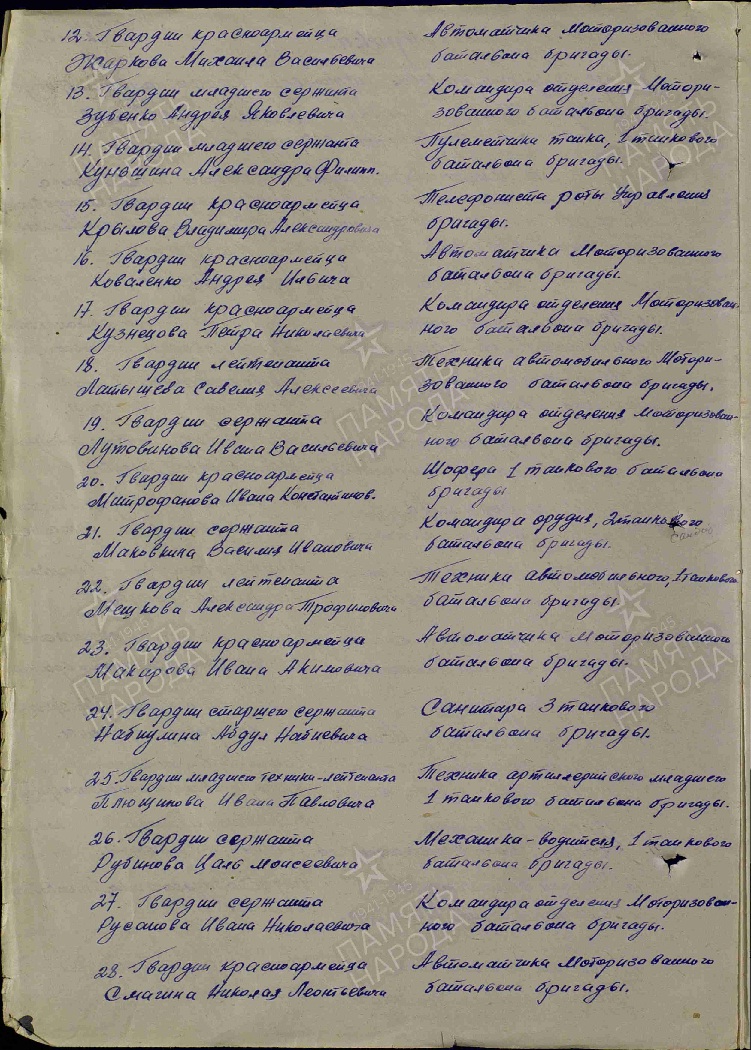 12. Гвардии красноармейца
Жаркова Михаила Васильевича
Автоматчика Моторизованного
батальона бригады.
13. Гвардии младшего сержанта
Зубенко Андрея Яковлевича
Командира отделения Мотори-
зованного батальона бригады.
14. Гвардии младшего сержанта
Александра Филипп.
Пулеметчика танка, 1 танкового
батальона бригады.
15. Гвардии красноармейца
Крылова Владимира Александровича
Телефониста роты Управления
бригады.
16. Гвардии красноармейца
Коваленко Андрея Ильича
Автоматчика Моторизованного
батальона бригады.
17. Гвардии красноармейца
Кузнецова Петра Николаевича
Командира отделения Моторизован-
ного батальона бригады.
18. Гвардии лейтенанта
Латышева Савелия Алексеевича
Техника автомобильного Мотори-
зованного батальона бригады.
19. Гвардии сержанта
Лутовинова Ивана Васильевича
Командира отделения Моторизован-
ного батальона бригады.
20. Гвардии красноармейца
Митрофанова Ивана Константинов.
Шофера 1 танкового батальона
бригады
21. Гвардии сержанта
Маковкина Василия Ивановича
Командира орудия, 2 танкового
батальона бригады.
22. Гвардии лейтенанта
Мешкова Александра Трофимовича
Техника автомобильного, 1 танкового
батальона бригады.
23. Гвардии красноармейца
Макарова Ивана Акимовича
Автоматчика Моторизованного
батальона бригады.
24. Гвардии старшего сержанта
Набиулина Абдул Набиевича
Санитара 3 танкового
батальона бригады.
25. Гвардии младшего техника-лейтенанта
Плющикова Ивана Павловича
Техника артиллерийского младшего
1 танкового батальона бригады.
26. Гвардии сержанта
Рубинова Цаль Моисеевича
Механика-водителя, 1 танкового
батальона бригады.
27. Гвардии сержанта
Русанова Ивана Николаевича
Командира отделения Моторизован-
ного батальона бригады.
28. Гвардии красноармейца
Смагина Николая Леонтьевича
Автоматчика Моторизованного
батальона бригады.
ПАМЯТЬ
НАРОДА
1941-1945